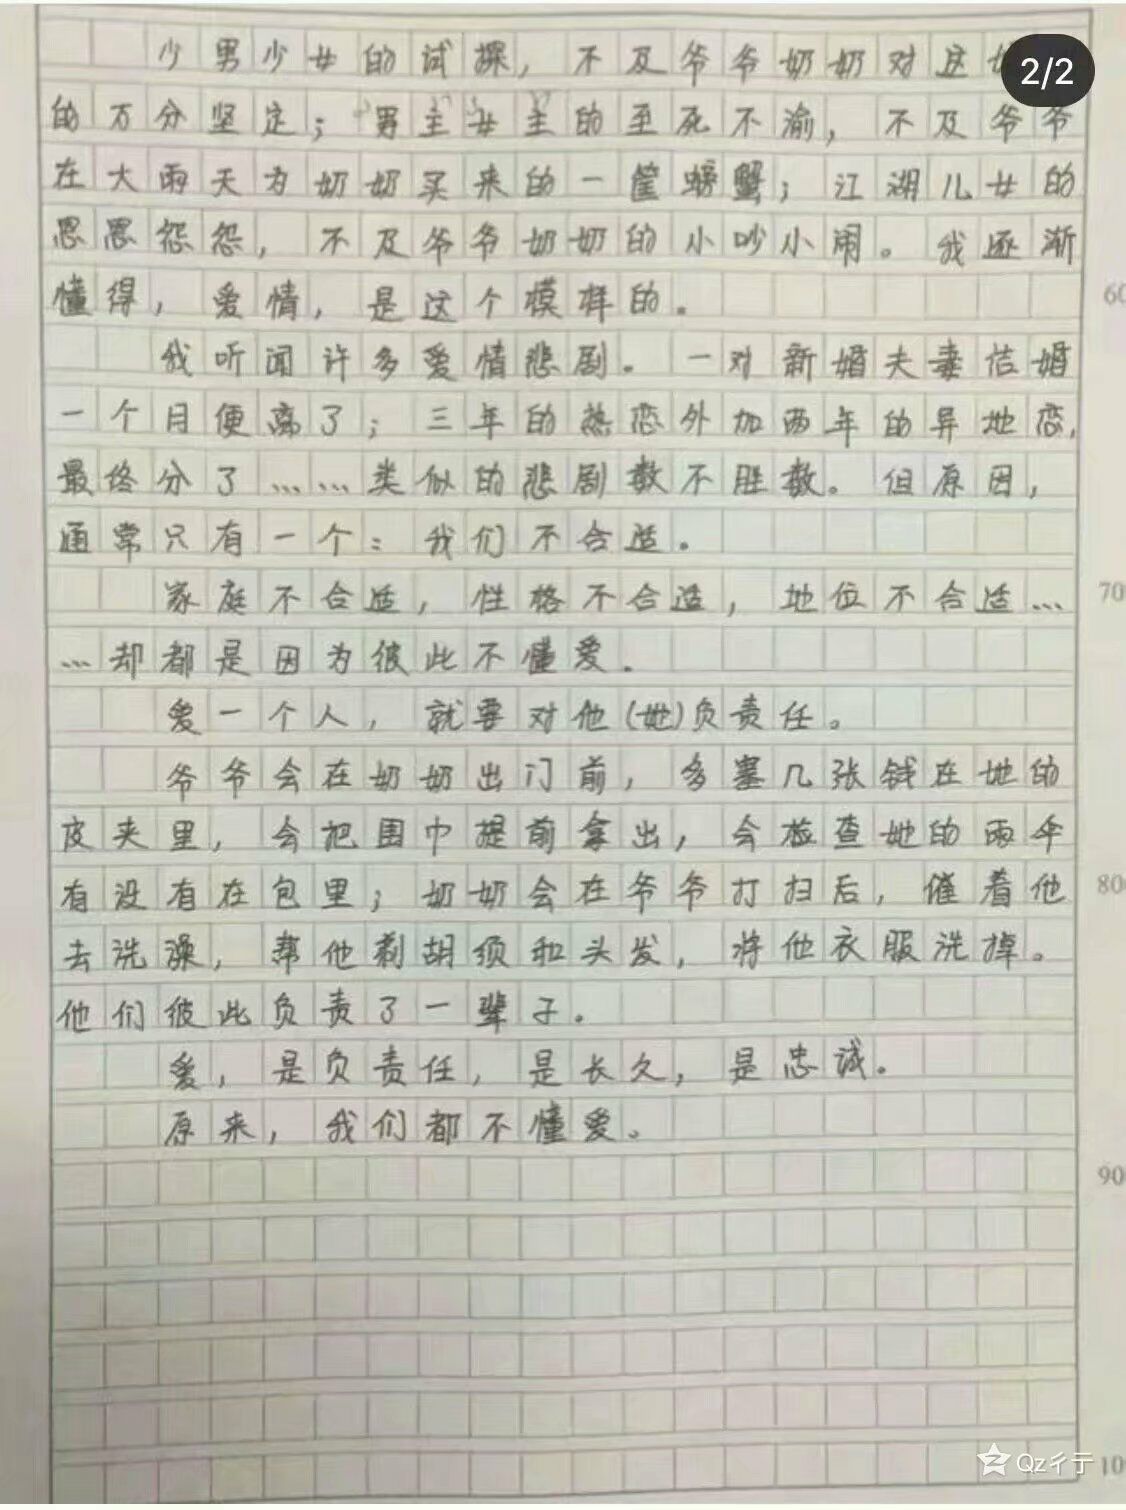 少男少女的试探，不及爷爷奶奶对这
2/2
的万分坚定；“男主”“女主”的至死不渝，不及爷爷
在大雨天为奶奶买来的一筐螃蟹；江湖儿女的
恩恩怨怨，不及爷爷奶奶的小吵小闹。我逐渐
懂得，爱情，是这个模样的。
60
我听闻许多爱情悲剧。一对新婚夫妻结婚
一个月便离了；三年的热恋外加两年的异地恋，
最终分了……类似的悲剧数不胜数。但原因，
通常只有一个：我们不合适。
家庭不合适，性格不合适，地位不合适…
70
…却都是因为彼此不懂爱。
爱一个人，就要对他(她)负责任。
爷爷会在奶奶出门前，多塞几张钱在她的
皮夹里，会把围巾提前拿出，会检查她的雨伞
有没有在包里；奶奶会在爷爷打扫后，催着他
80
去洗澡，帮他剃胡须和头发，将他衣服洗掉。
他们彼此负责了一辈子。
爱，是负责任，是长久，是忠诚。
原来，我们都不懂爱。
90
Qz彳亍
10